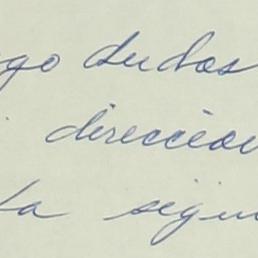 go dudas
direccion
ta sigu